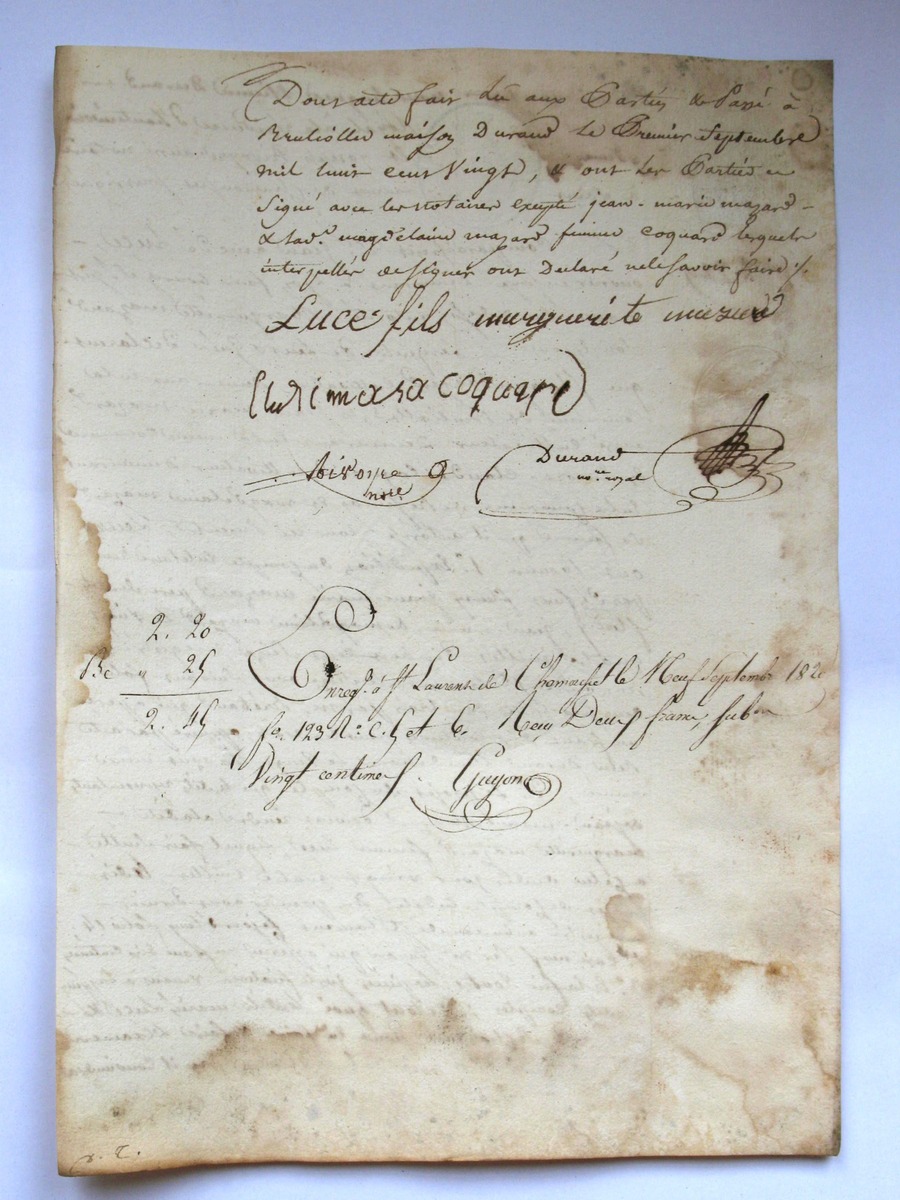 Dont acte fait Lu aux Parties & Passé à
Brulliolles maison Durand Le Premier Septembre
mil huit cent Vingt, & ont les Parties
Signé avec les notaires excepté jean-marie mazard
& lad.e magdelaine mazard femme Coquard lesquels
interpellés de signer ont Declaré ne le savoir faire ./.
Luce fils marguerite mazard
coquard
Durand
nore.
no.re royal
2. 20
" 25
2. 45
Enreg. à St Laurent de Chamousset le Neuf Septembre 1820
fo. 123 Ro. C. 5 et 6. Reçu Deux francs, subon
Vingt centimes. Guyon